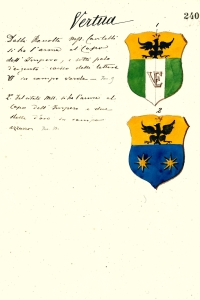 Vertua
240
1
Dalla Raccolta Mss. Caritelli
si ha l'arma col Capo
dell'Impero, e sotto palo
d'argento carico delle lettere
VE in campo verde
VE
2
2.° dal citato Mss. si ha l'arma col
Capo dell'Impero e due
stelle d'oro in campo
azzurro